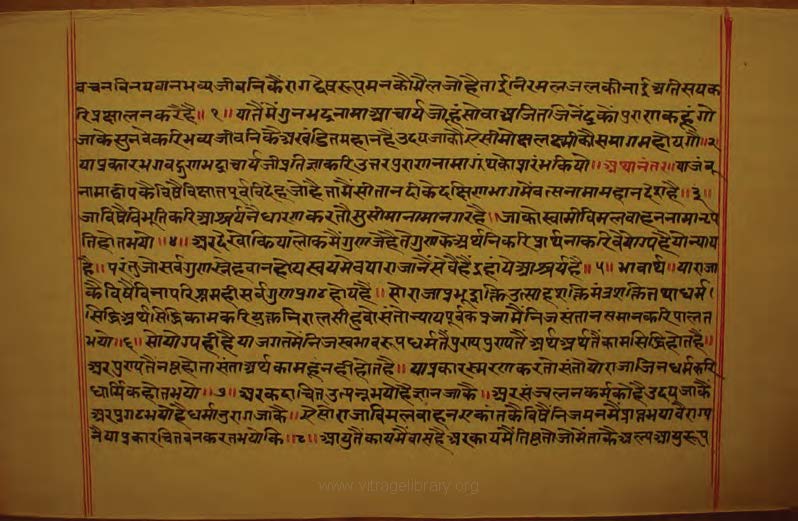 वचनविनयवानभव्यजीवनिकैंरागद्वेषरूपमनकौमैलजोहैताईनिरमलजलकीनाईअतिसयक
रिप्रक्षालनकरैहै॥१॥यातैंमैंगुनभद्रनामाआचार्यजोहूंसोवाअजितजिनेंद्रकोंपुराणकहूंगो
जाकेसुनवेकरिभव्यजीवनिकैंअखंडितमहानहैउदयजाकौऐसीमोक्षलक्ष्मीकौसमागमहोयगौ॥२
याप्रकारभगवद्गुणभद्राचार्यजीप्रतिज्ञाकरिउत्तरपुराणनामाग्रंथकाप्रारंभकियो॥अथानंतर॥याजंबू
नामाद्वीपकैविषैंविक्षातपूर्वविदेहजोहैतामैंसीतानदीकेदक्षिणभागमेंवत्सनामामहानदेशहै॥३॥
जाविषैंविभूतिकरिआश्चर्यनैंधारणकरतौसुसीमानामानगरहै॥जाकोस्वामीविमलवाहननामानृप
तिहोतभयो॥४॥अरदेखोकियालोकमैंगुणजेहैंतेगुणकेअर्थनिकरिप्रार्थनाकरिवेयोग्यहैयोन्याय
है॥परंतुजोसर्वगुणस्नेहवानहोयस्वयमेवयाराजानैंसेवैंहैंइहांयेआश्चर्यहै॥५॥भावार्थ॥याराजा
कैविषैंविनापरिश्रमहीसर्वगुणप्रगटहोयहैं॥सोराजाप्रभूशक्तिउत्साहशक्तिमंत्रशक्तितथाधर्म
सिद्धिअर्थसिद्धिकामकरियुक्तनिरालसीहुवोसंतोन्यायपूर्वकप्रजामैंनिजसंतानसमानकरिपालत
भयो॥६॥सोयोग्यहीहैयाजगतमेंनिजस्वभावरूपधर्मतैंपुण्यपुण्यतैंअर्थअर्थतैंकामसिद्धिहोतहै॥
अरपुण्यतैंनष्टहोतासंताअर्थकामहूनहीहोतहै॥याप्रकारस्मरणकरतोसंतोयोराजाजिनधर्मकरि
धार्मिकहोतभयो॥७॥अरकदाचितउत्पन्नभयोहैज्ञानजाकै॥अरसंज्वलनकर्मकौहैउदयजाकैं
अरप्रगटभयोहैधर्मानुरागजाके॥ऐसोराजाविमलवाहनएकांतकेविषैंनिजमनमेंप्राप्तभयावैराग्य
नैयाप्रकारचितवनकरतभयोकि॥८॥आयुतैंकायमैंवासहैअरकायमैंतिष्ठतोजोमेंताकैअल्पआयुरूप
www.vitragelibrary.org